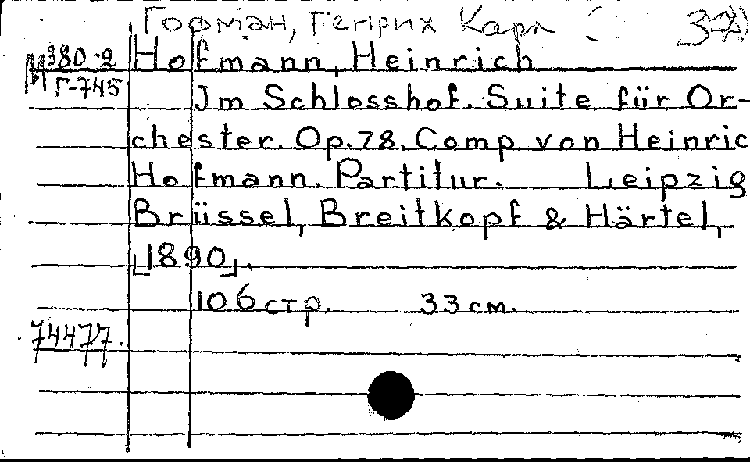 Гофман, Генрих Карл
М380-2
Г-745
Hofmann, Heinrich
Jm Schlosshof. Suite für Or-
chester. Op.78. Comp von Heinric
Hofmann. Partitur. Leipzig
Brüssel, Breitkopf & Härtel,
[1890].
106 стр. 33 см.
74477.